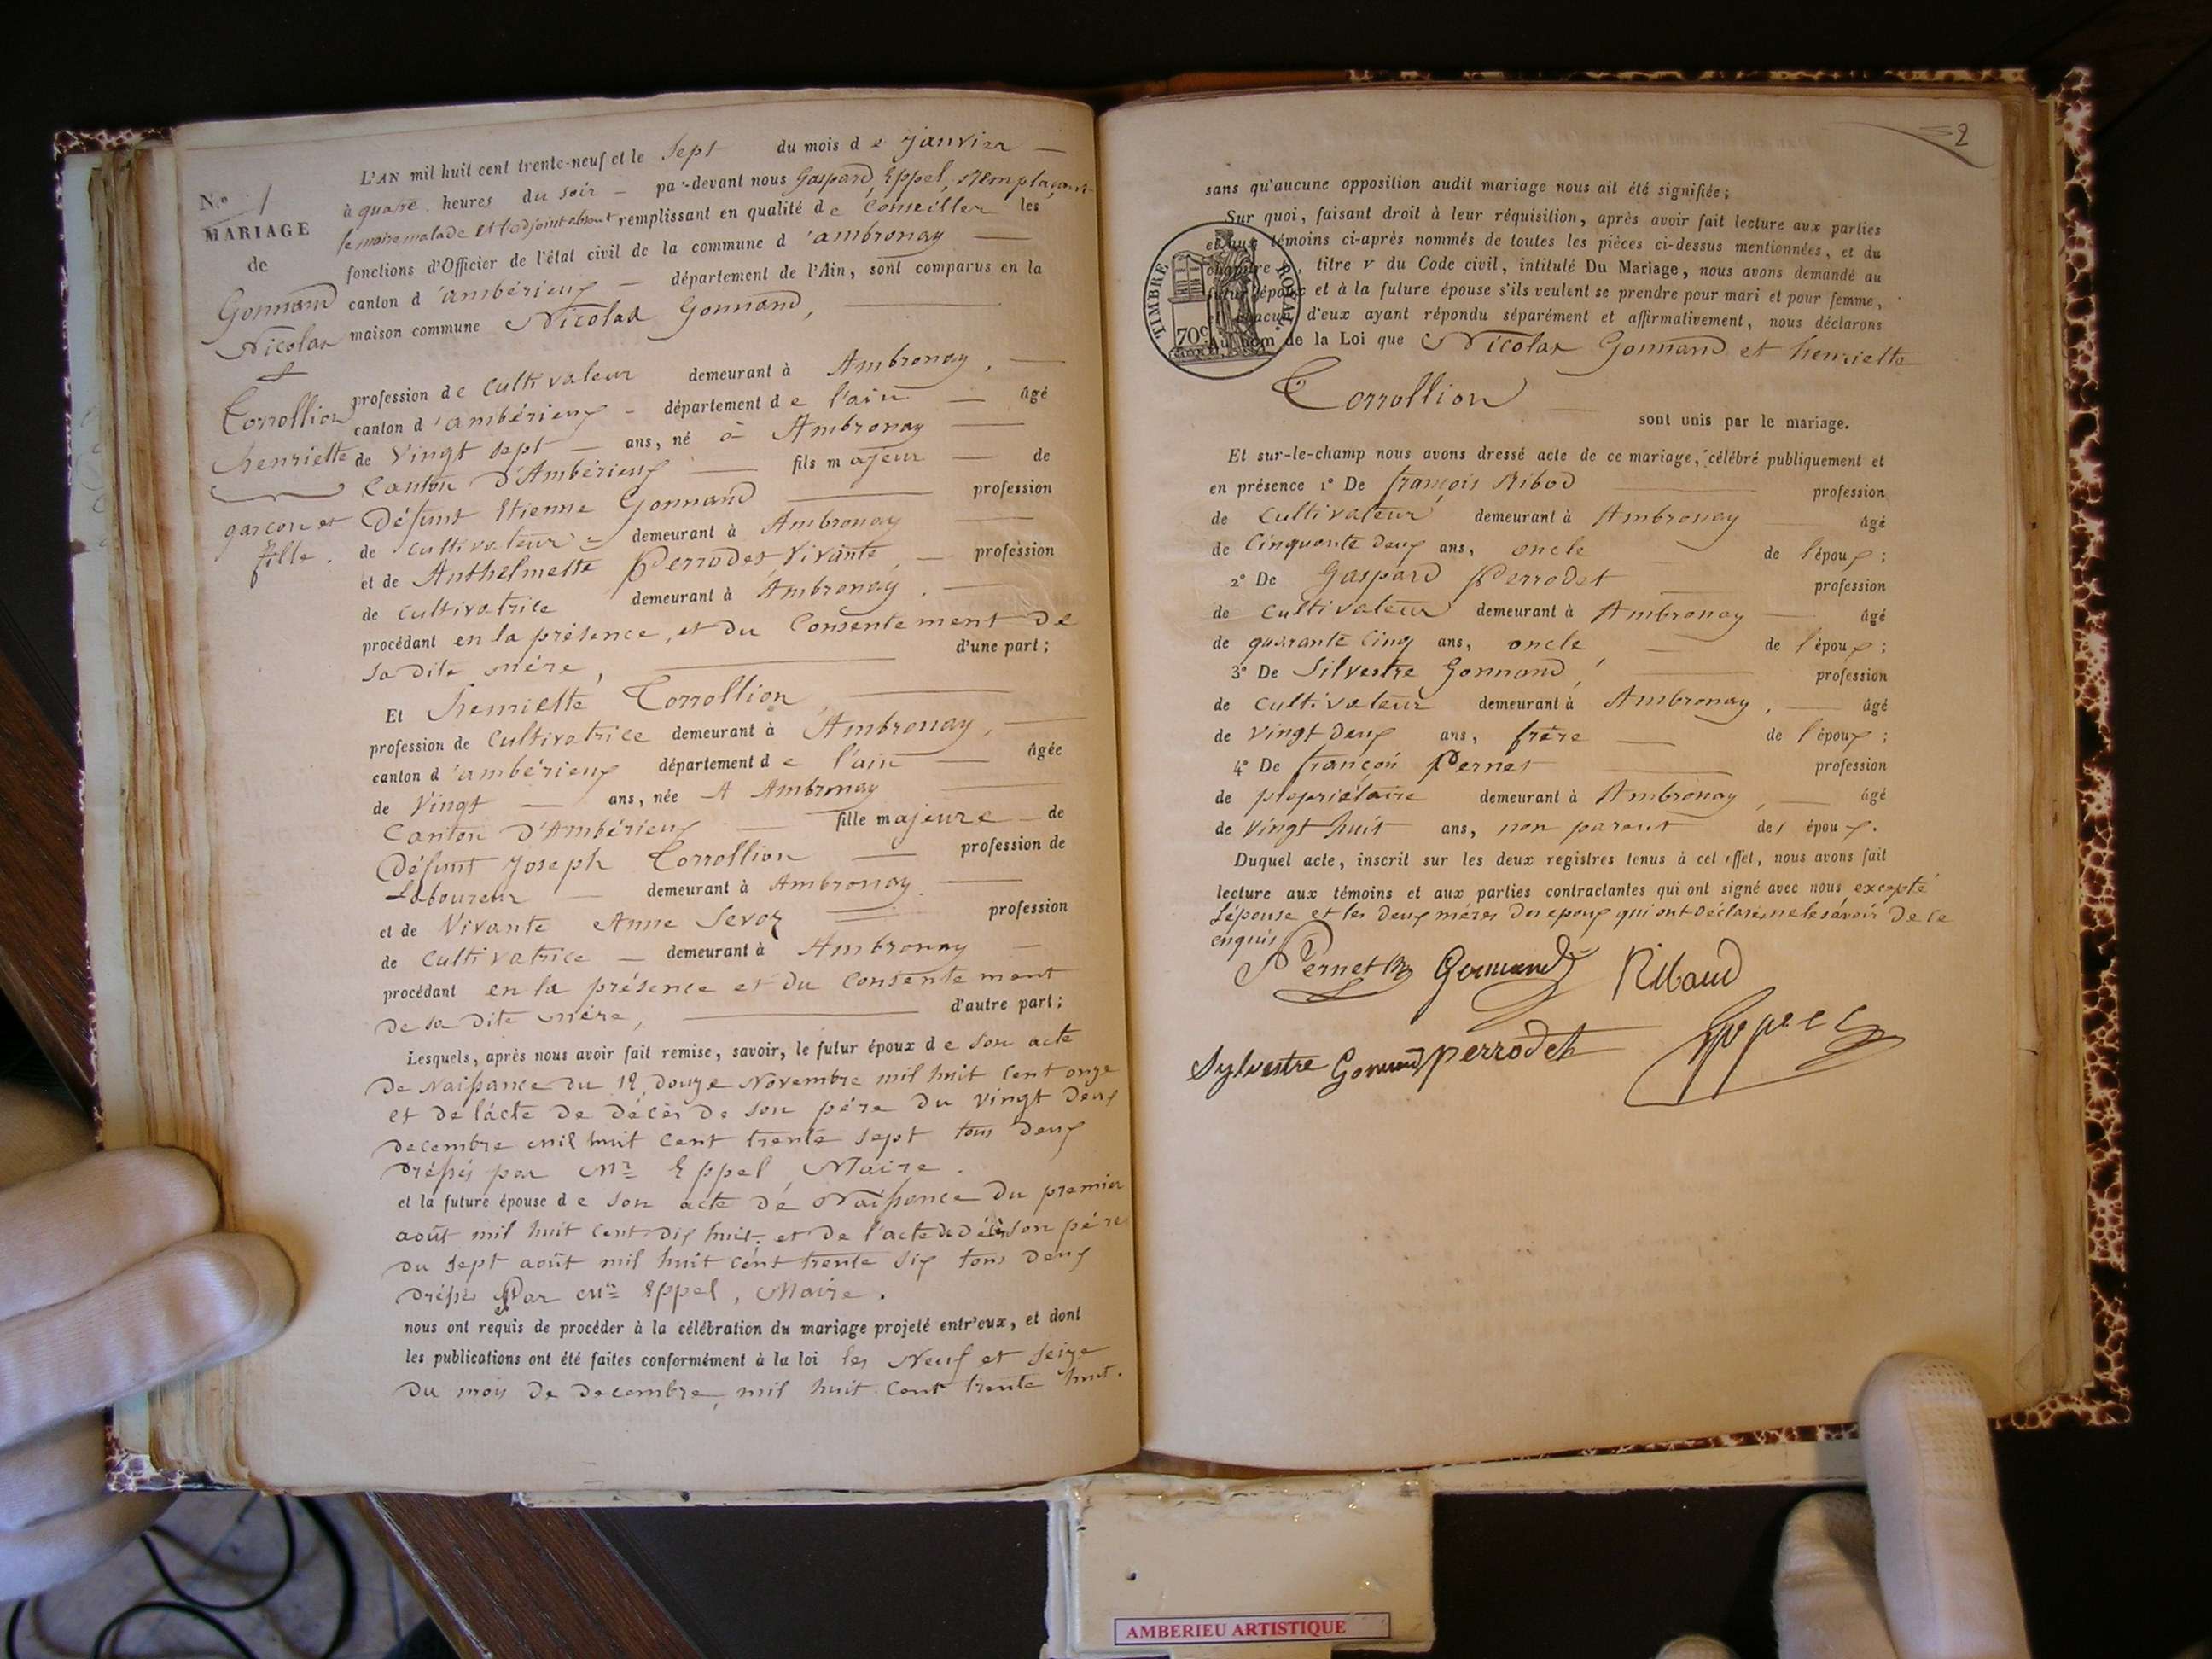 N.º 1
MARIAGE
de
Gonnand
Nicolas
&
Corrollion
henriette
garçon et
fille.
L'AN mil huit cent trente-neuf et le Sept du mois de janvier
à quatre heures du soir par-devant nous Gaspard Eppel, remplaçant
le maire malade et l'adjoint absent remplissant en qualité de Conseiller les
fonctions d'Officier de l'état civil de la commune d'ambronay
canton d'ambérieux département de l'Ain, sont comparus en la
maison commune Nicolas Gonnand,
profession de Cultivateur demeurant à Ambronay,
canton d'ambérieux département de l'ain âgé
de Vingt sept ans, né à Ambronay
Canton D'Ambérieux fils majeur de
Défunt Etienne Gonnand profession
de Cultivateur demeurant à Ambronay
et de Anthelmette Perrodet, Vivante, profession
de Cultivatrice demeurant à Ambronay.
procédant en la présence, et du Consentement De
Sa dite mère, d'une part;
Et henriette Corrollion,
profession de Cultivatrice demeurant à Ambronay,
canton d'ambérieux département de l'ain âgée
de Vingt ans, née A Ambronay
Canton D'Ambérieux fille majeure de
Défunt Joseph Corrollion profession de
Laboureur demeurant à Ambronay.
et de Vivante Anne Sevoz profession
de Cultivatrice demeurant à Ambronay
procédant en la présence et du Consentement
de sa dite mère, d'autre part;
Lesquels, après nous avoir fait remise, savoir, le futur époux de Son acte
De Naissance du 12 douze Novembre mil huit Cent onze
et de l'acte De décès De Son père Du vingt Deux
decembre mil huit Cent trente sept tous Deux
Dréssés par Mr Eppel Maire.
et la future épouse de Son acte dé Naissance Du premier
août mil huit Cent Dix huit. et De l'acte de décès son père
Du Sept août mil huit Cent trente Six tous Deux
Dréssés Par Mr Eppel, Maire.
nous ont requis de procéder à la célébration du mariage projeté entr'eux, et dont
les publications ont été faites conformément à la loi les Neuf et Seize
Du mois De Decembre, mil huit Cent trente huit.
2
sans qu'aucune opposition audit mariage nous ait été signifiée;
Sur quoi, faisant droit à leur réquisition, après avoir fait lecture aux parties
et aux témoins ci-après nommés de toutes les pièces ci-dessus mentionnées, et du
chapitre , titre v du Code civil, intitulé Du Mariage, nous avons demandé au
futur époux et à la future épouse s'ils veulent se prendre pour mari et pour femme,
et chacun d'eux ayant répondu séparément et affirmativement, nous déclarons
au nom de la Loi que Nicolas Gonnand et henriette
Corrollion
sont unis par le mariage.
TIMBRE ROYAL
70c
Et sur-le-champ nous avons dressé acte de ce mariage, célébré publiquement et
en présence 1º De françois Ribod profession
de Cultivateur demeurant à Ambronay âgé
de Cinquante Deux ans, oncle de l'époux;
2º De Gaspard Perrodet profession
de Cultivateur demeurant à Ambronay âgé
de quarante Cinq ans, oncle de l'époux;
3º De Silvestre Gonnand, profession
de Cultivateur demeurant à Ambronay, âgé
de Vingt Deux ans, frère de l'époux;
4º De françois Pernet profession
de propriétaire demeurant à Ambronay, âgé
de Vingt huit ans, non parent des époux.
Duquel acte, inscrit sur les deux registres tenus à cet effet, nous avons fait
lecture aux témoins et aux parties contractantes qui ont signé avec nous excepté
L'épouse et les Deux mères Des époux qui ont Déclaré ne le savoir De ce
enquis
Pernet Gonnand Ribaud
Sylvestre Gonnand perrodet Eppel
AMBERIEU ARTISTIQUE